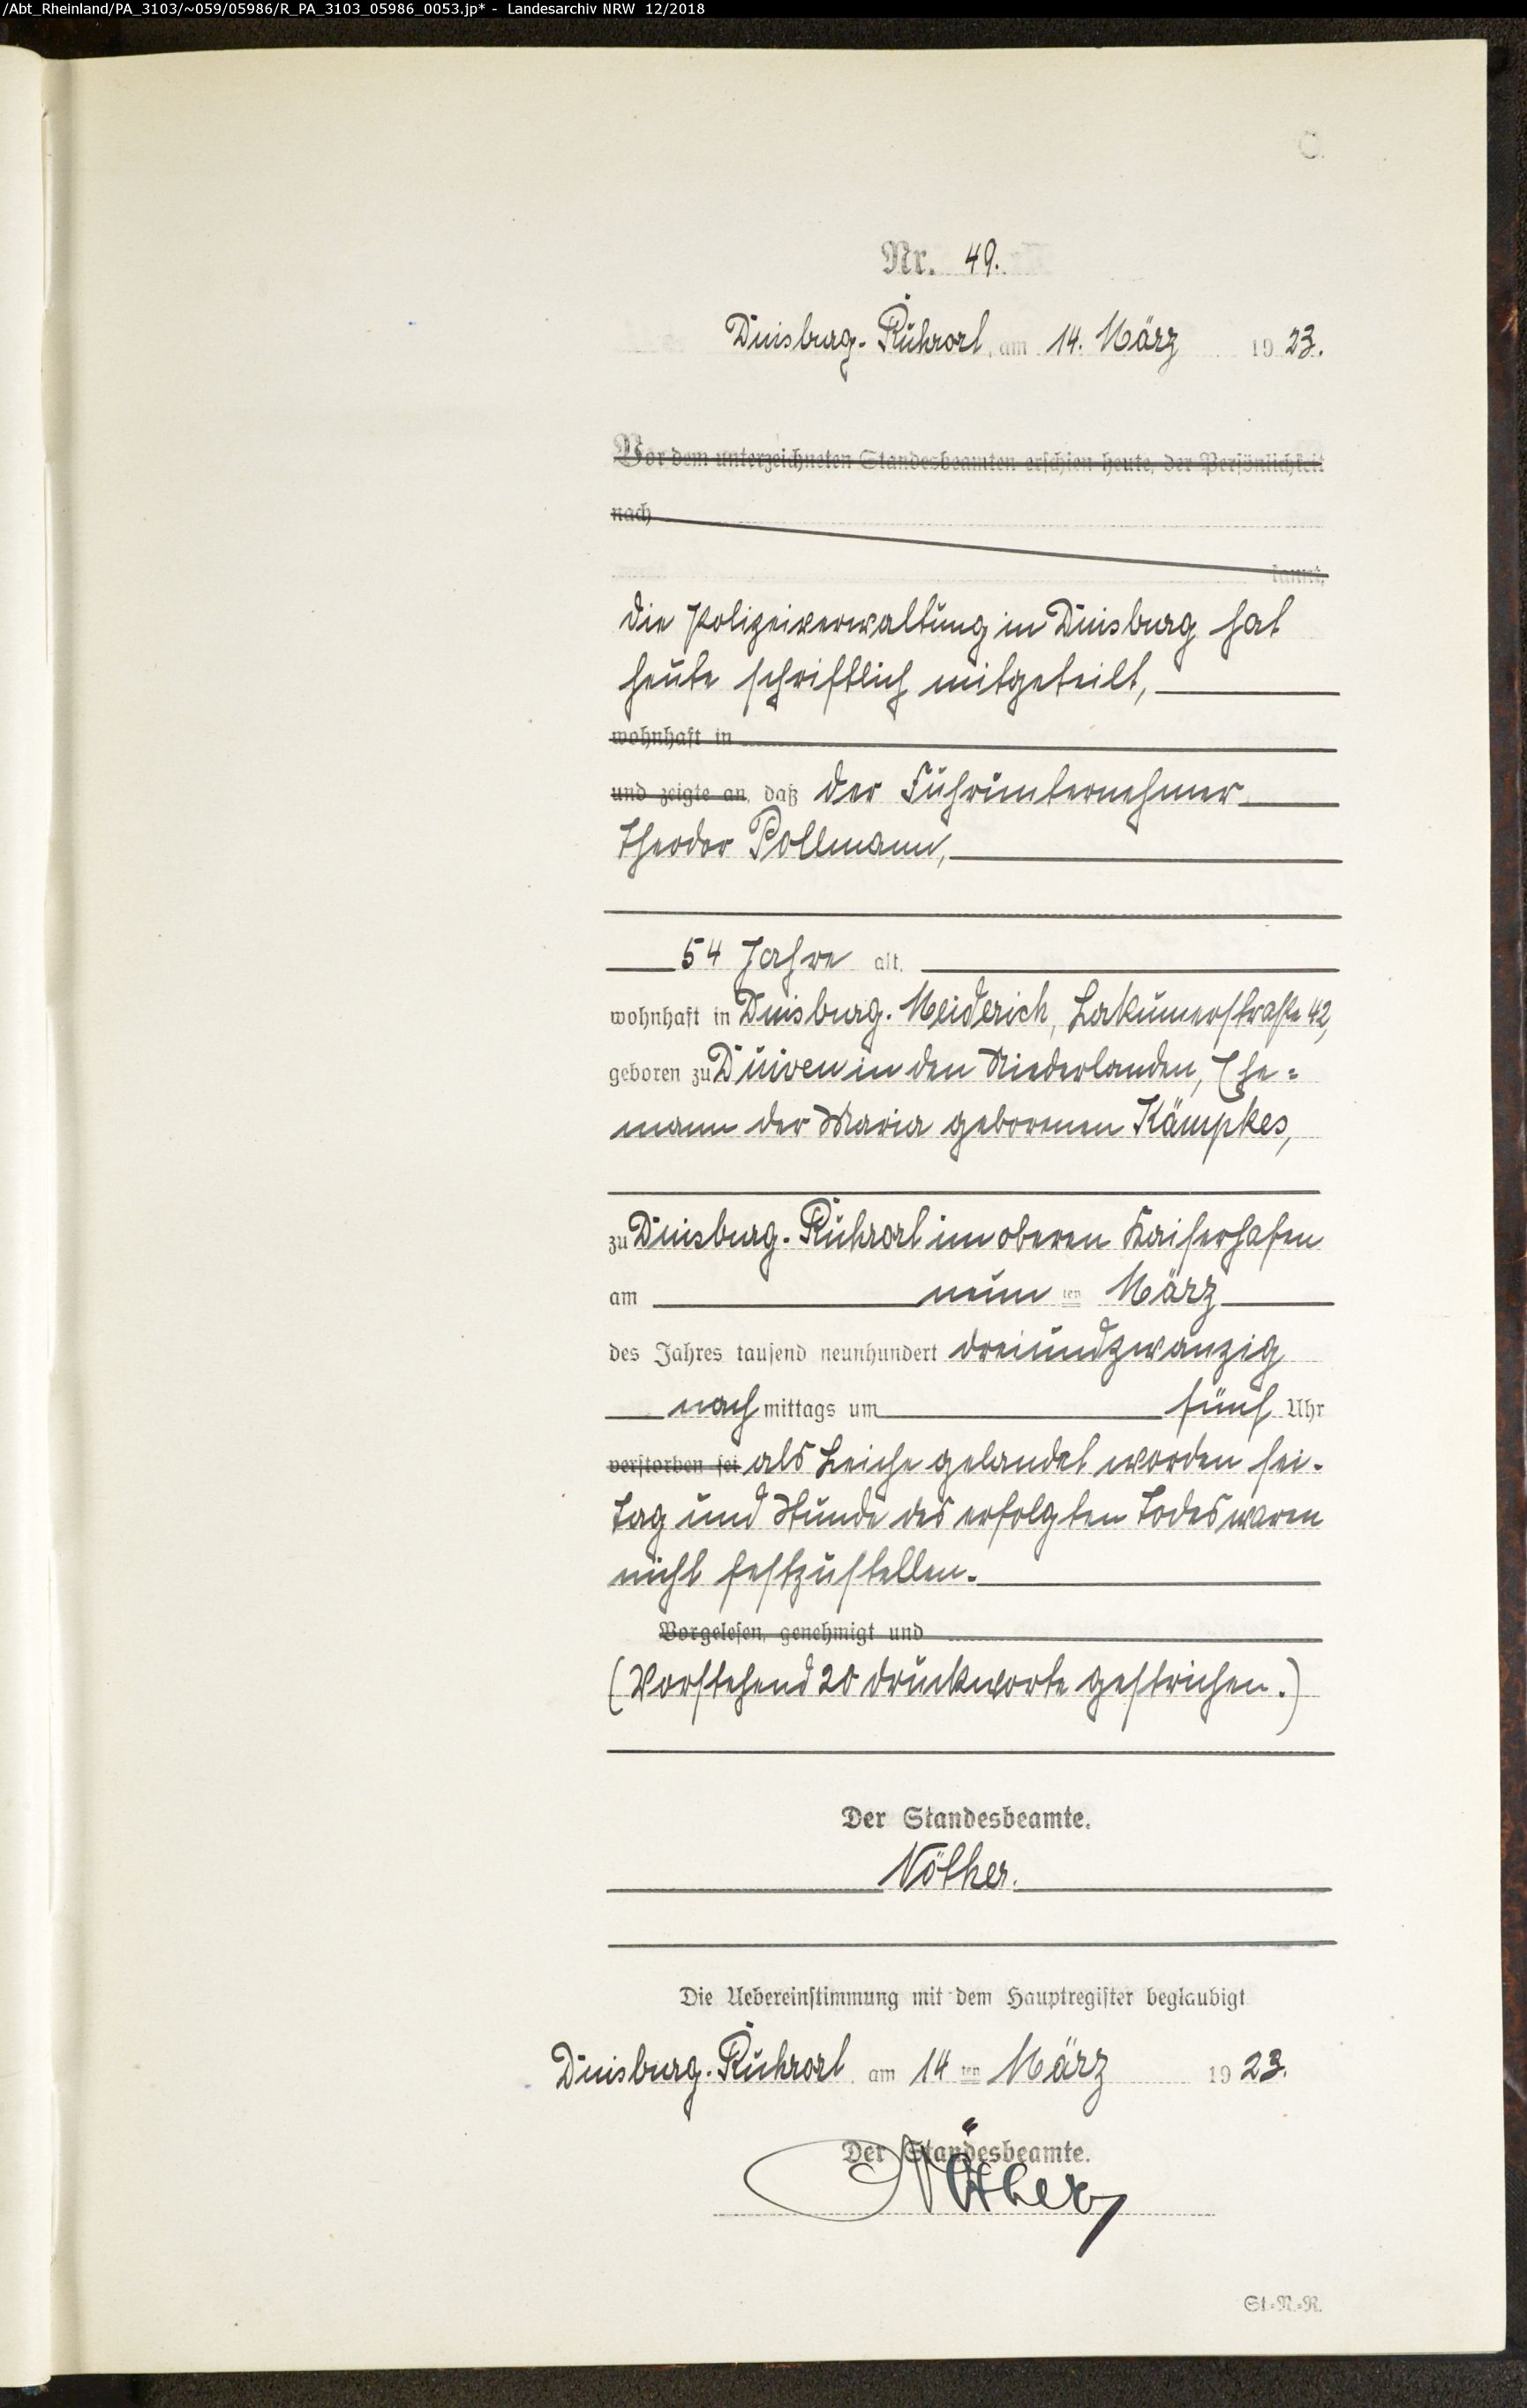 /Abt_Rheinland/PA_3103/~059/05986/R_PA_3103_05986_0053.jp* - Landesarchiv NRW 12/2018
C.
Nr. 49.
Duisburg-Ruhrort, am 14. März 1923.
Vor dem unterzeichneten Standesbeamten erschien heute, der Persönlichkeit
nach
kannt,
die Polizeiverwaltung in Duisburg hat
heute schriftlich mitgeteilt,
wohnhaft in
und zeigte an, daß der Fuhrunternehmer
Theodor Pollmann,
54 Jahre alt,
wohnhaft in Duisburg-Meiderich, Lakumerstraße 42,
geboren zu Duiven in den Niederlanden, Ehe=
mann der Maria geborenen Kämpkes,
zu Duisburg-Ruhrort im oberen Kaiserhafen
am neun ten März
des Jahres tausend neunhundert dreiundzwanzig
nachmittags um fünf Uhr
verstorben sei als Leiche gelandet worden sei.
Tag und Stunde des erfolgten Todes waren
nicht festzustellen.
Vorgelesen, genehmigt und
(Vorstehend 20 Druckworte gestrichen.)
Der Standesbeamte.
Nöther.
Die Uebereinstimmung mit dem Hauptregister beglaubigt
Duisburg-Ruhrort, am 14 ten März 1923.
Der Standesbeamte.
Nöther
St.=N.=R.